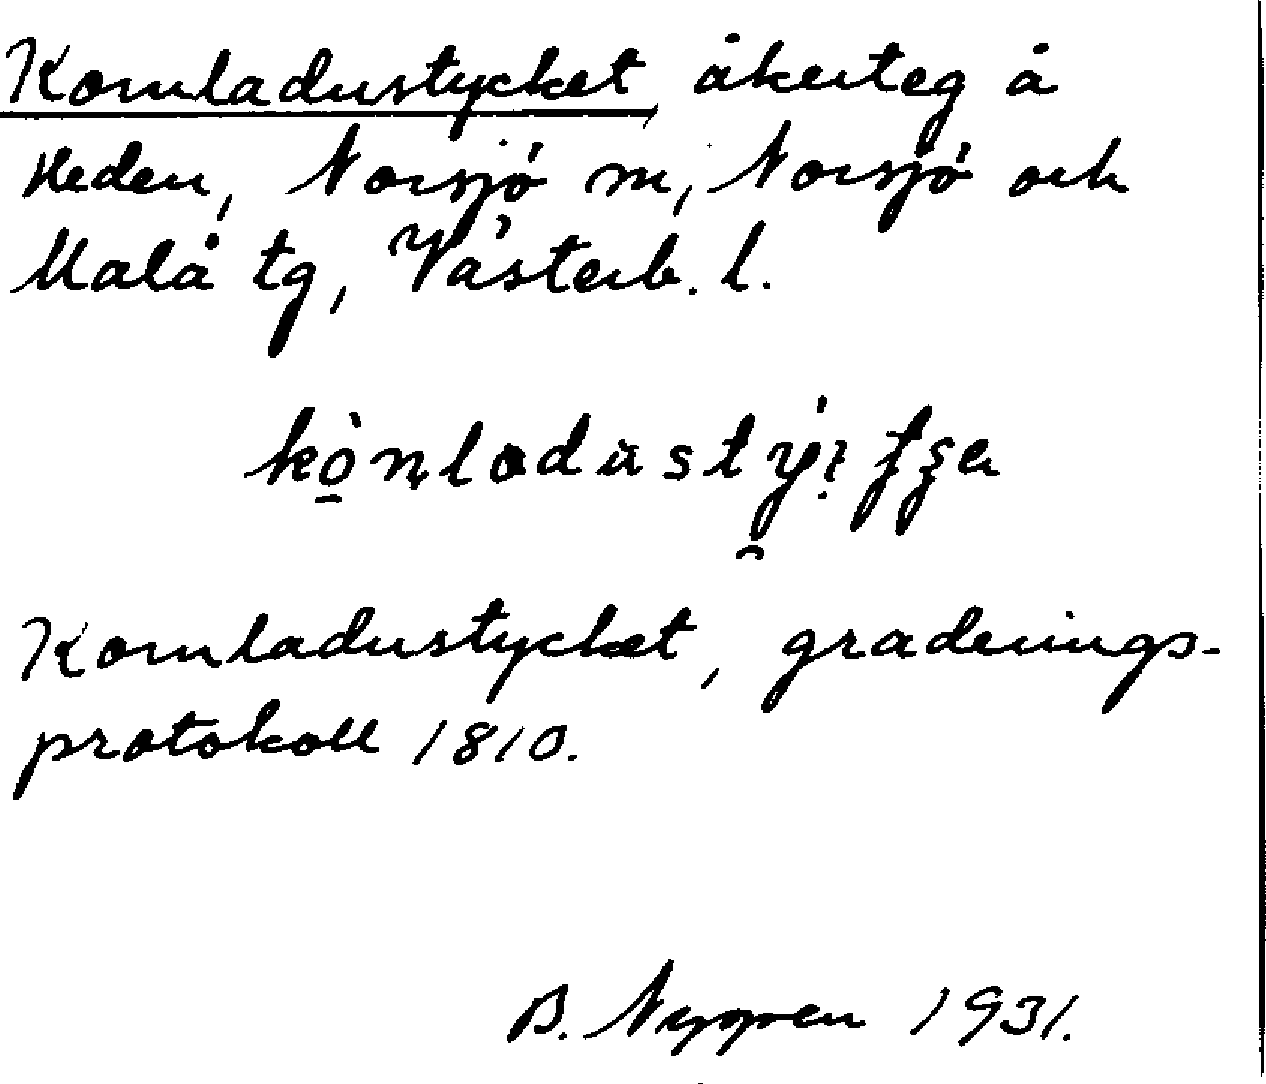 Kornladustycket, åkerteg å
Heden, Norsjö sn, Norsjö och
Malå tg, Västerb. l.
Kornladustycket, graderings-
protokoll 1810.
B. Nygren 1931.